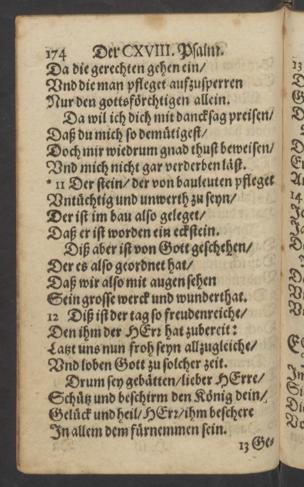 174 Der CXVIII. Psalm.
Da die gerechten gehen ein/
Vnd die man pfleget aufzusperren
Nur den gottsförchtigen allein.
Da wil ich dich mit dancksag preisen/
Daß du mich so demütigest/
Doch mir wiedrum gnad thust beweisen/
Vnd mich nicht gar verderben läst.
* 11 Der stein/ der von bauleuten pfleget
Vntüchtig und unwerth zu seyn/
Der ist im bau also geleget/
Daß er ist worden ein eckstein.
Diß aber ist von Gott geschehen/
Der es also geordnet hat/
Daß wir also mit augen sehen
Sein grosse werck und wunderthat.
12 Diß ist der tag so freudenreiche/
Den ihm der HErr hat zubereit:
Latzt uns nun froh seyn allzugleiche/
Vnd loben Gott zu solcher zeit.
Drum sey gebätten/ lieber HErre/
Schütz und beschirm den König dein/
Gelück und heil/ HErr/ ihm beschere
In allem dem fürnemmen sein.
13 Ge-